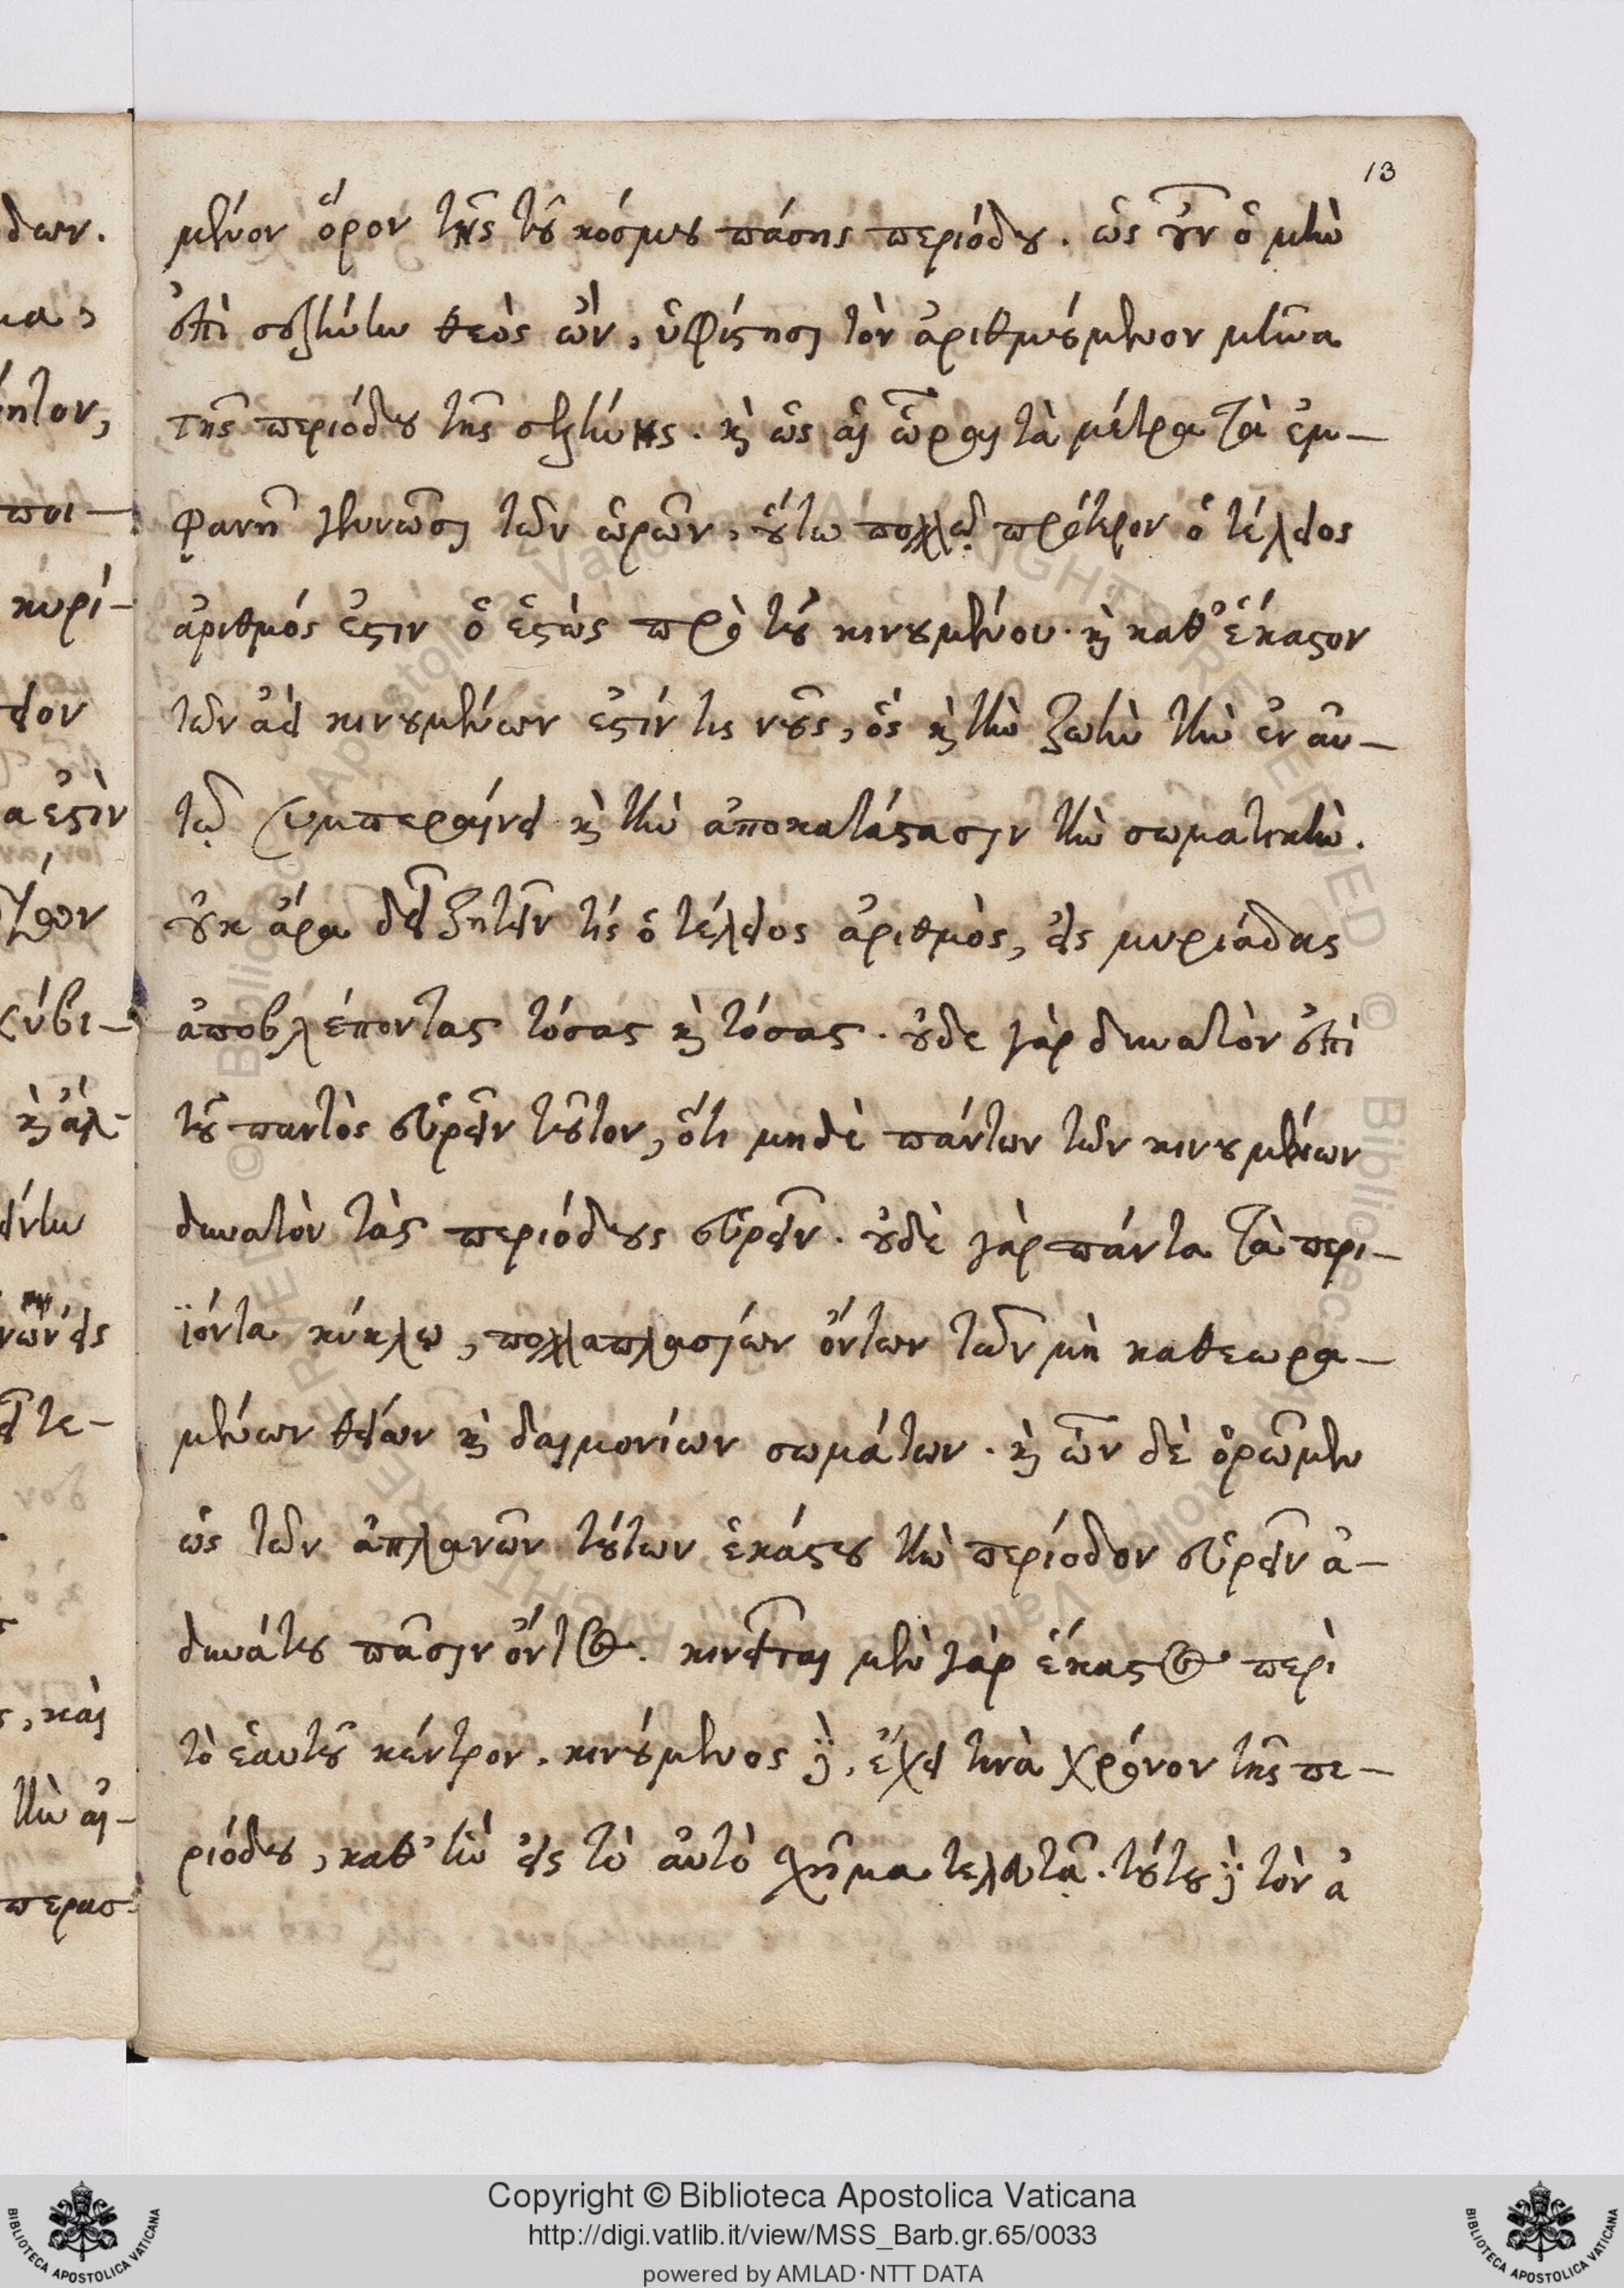 13
δων.
μένον ὅρον τῆς τοῦ κόσμου πάσης περιόδου. ὡς οὖν ὁ μὴν
ἐπὶ σελήνην θεὸς ὢν, ὑφίστησι τὸν ἀριθμούμενον μῆνα
ητον,
τῆς περιόδου τῆς σελήνης. καὶ ὡς αἱ ὧραι τὰ μέτρα τὰ ἐμ-
ποι-
φανῆ γεννῶσι τῶν ὡρῶν, οὕτω πολλῷ πρότερον ὁ τέλειος
κυρί-
ἀριθμός ἐστιν ὁ ἑστὼς πρὸ τοῦ κινουμένου. καὶ καθ' ἕκαστον
ειον
τῶν ἀεὶ κινουμένων ἐστίν τις νοῦς, ὃς καὶ τὴν ζωὴν τὴν ἐν αὐ-
α ἐστὶν
τῷ συμπεραίνει καὶ τὴν ἀποκατάστασιν τὴν σωματικήν.
οὐκ ἄρα δεῖ ζητεῖν τίς ὁ τέλειος ἀριθμὸς, εἰς μυριάδας
κύβι-
ἀποβλέποντας τόσας καὶ τόσας. οὐδε γὰρ δυνατὸν ἐπὶ
καὶ ἀλ-
τοῦ παντὸς εὑρεῖν τοῦτον, ὅτι μηδὲ πάντων τῶν κινουμένων
δυνατὸν τὰς περιόδους εὑρεῖν. οὐδὲ γὰρ πάντα τὰ περι-
ϊόντα κύκλῳ, πολλαπλασίων ὄντων τῶν μὴ καθεωρα-
εῖ τε-
μένων θείων καὶ δαιμονίων σωμάτων. καὶ ὧν δὲ ὁρῶμεν
ὡς τῶν ἀπλανῶν τούτων ἑκάστου τὴν περίοδον εὑρεῖν ἀ-
δυνάτου πᾶσιν ὄντος. κινεῖται μὲν γὰρ ἕκαστος περὶ
ς, καὶ
τὸ ἑαυτοῦ κέντρον. κινούμενος δὲ, ἔχει τινὰ χρόνον τῆς πε-
τὴν αἰ-
ριόδου, καθ' ἣν εἰς τὸ αὐτὸ σχῆμα τελευτᾷ. τούτου δὲ τὸν ἀ
περασ-
Copyright © Biblioteca Apostolica Vaticana
http://digi.vatlib.it/view/MSS_Barb.gr.65/0033
powered by AMLAD·NTT DATA
BIBLIOTECA APOSTOLICA VATICANA
BIBLIOTECA APOSTOLICA VATICANA